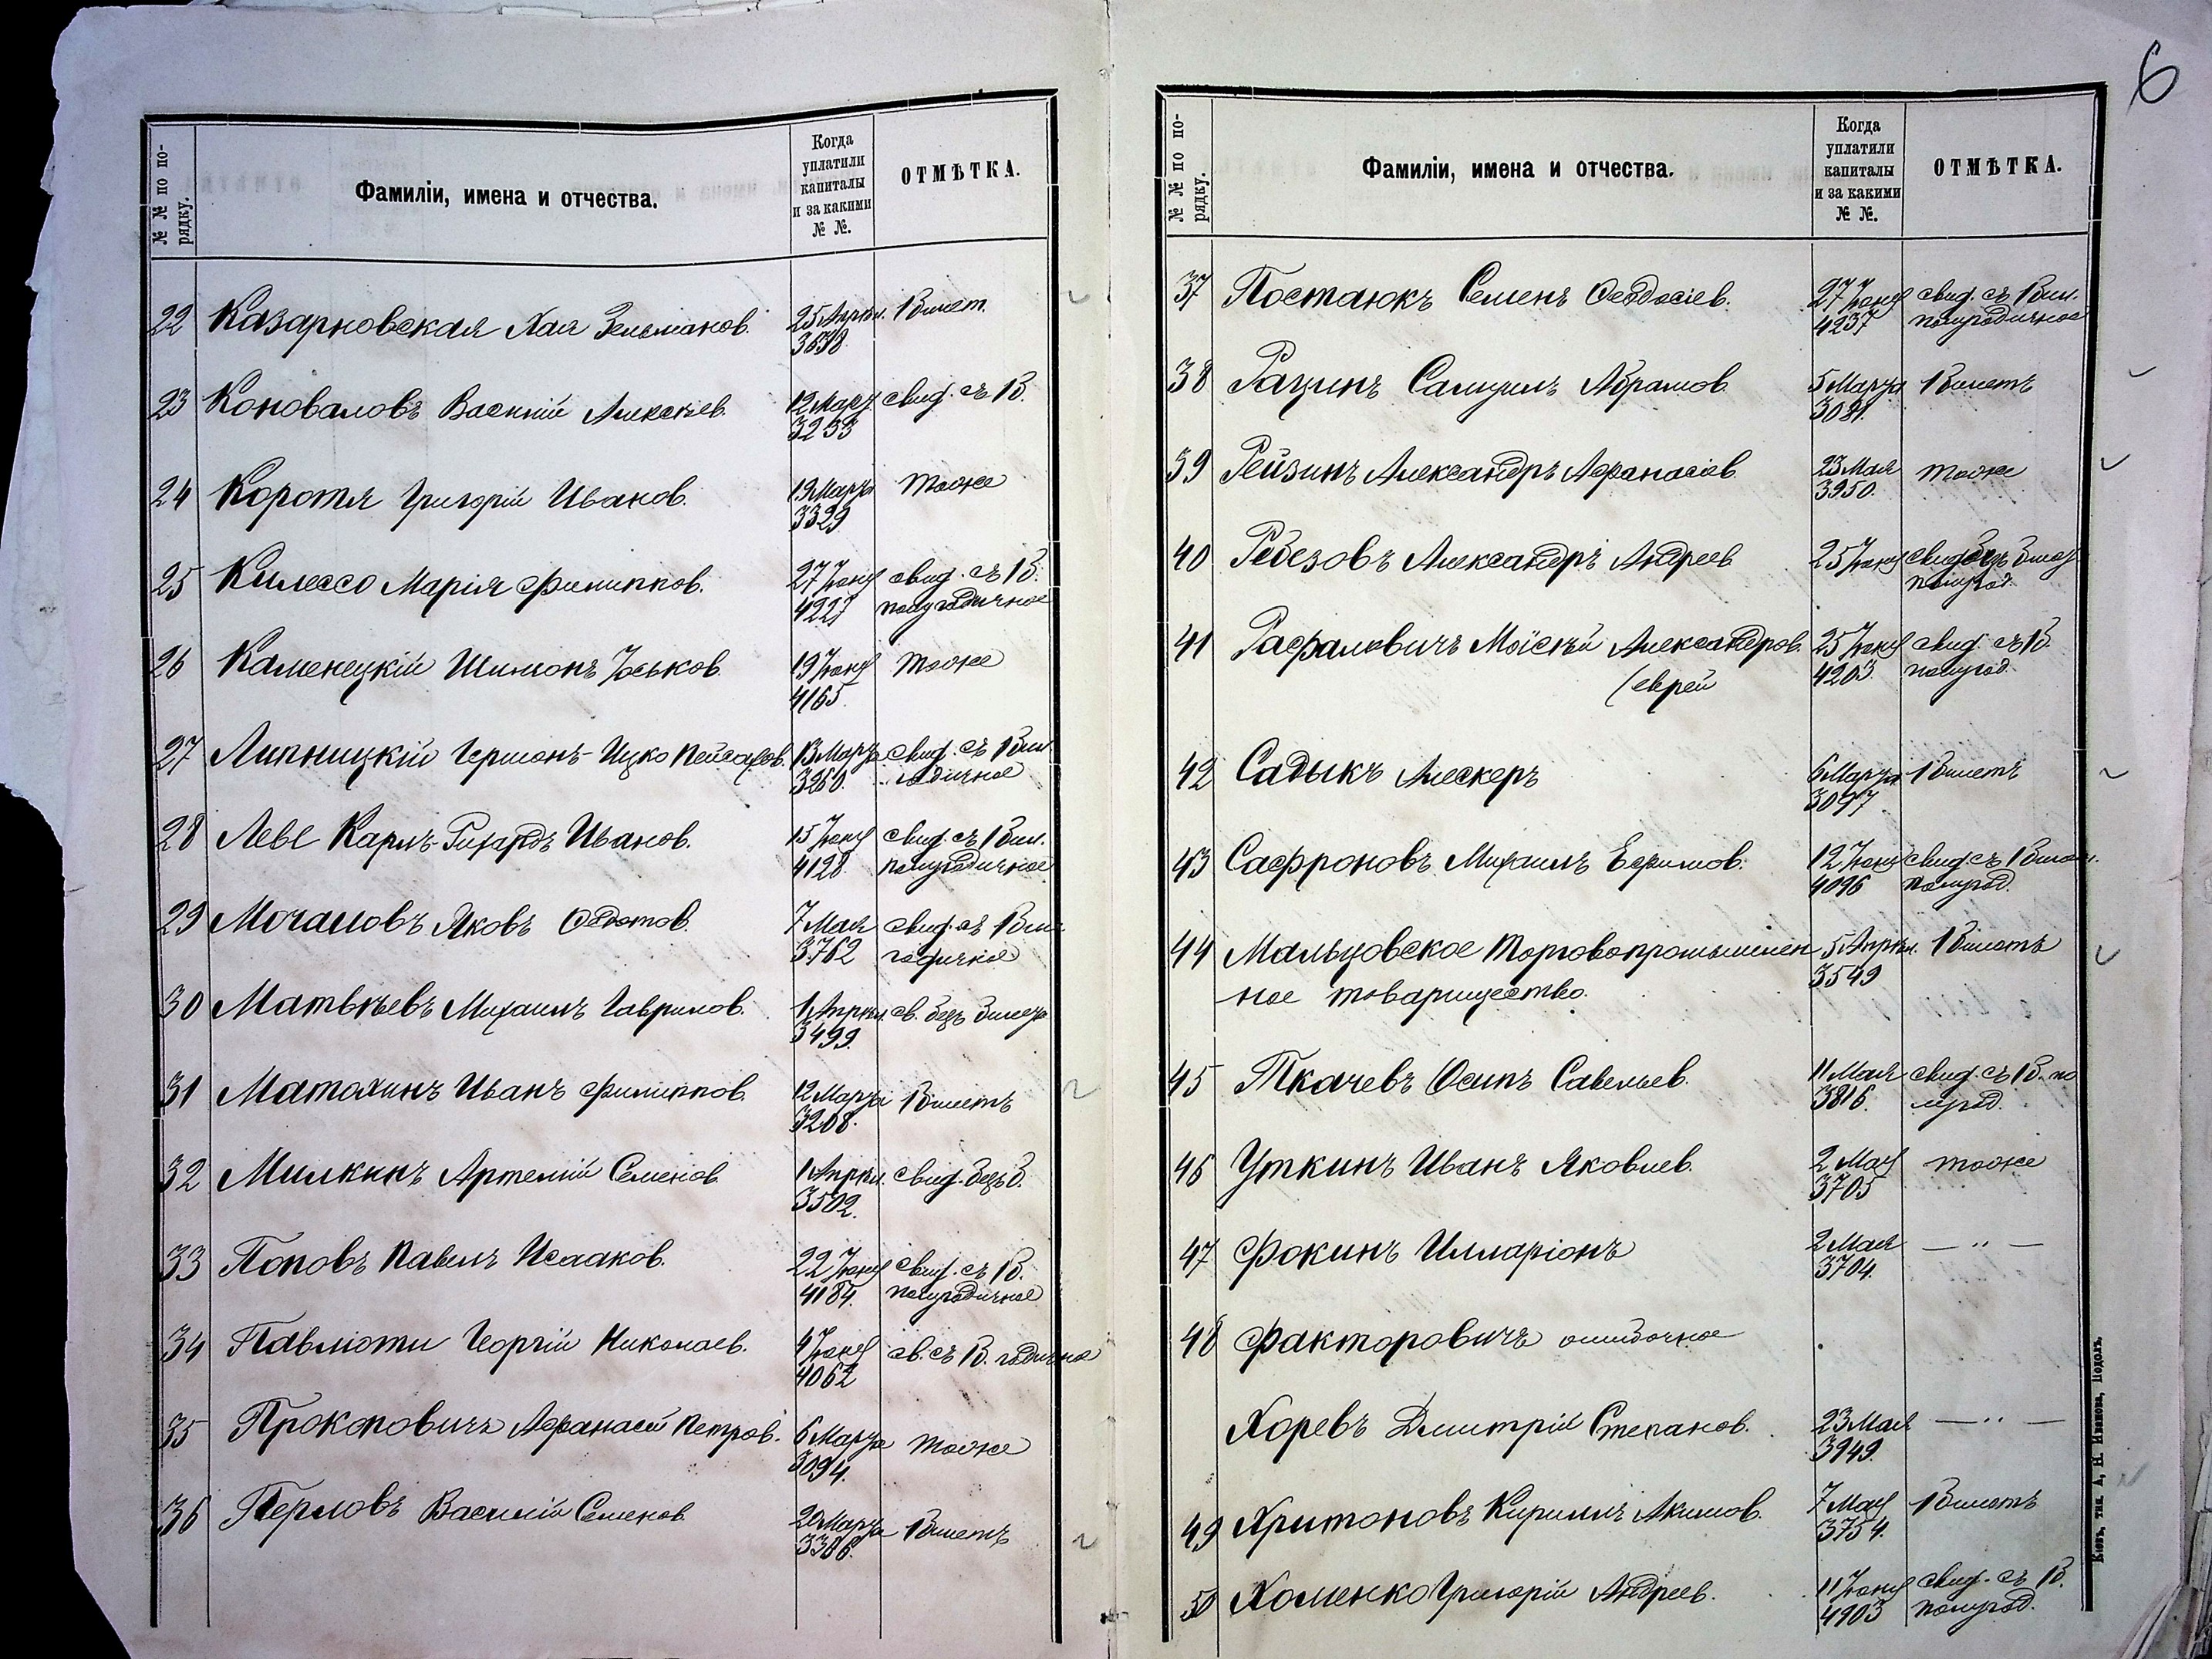 6
№ № по по-
рядку.
Фамиліи, имена и отчества.
Когда
уплатили
капиталы
и за какими
№ №.
ОТМѢТКА.
22 Казарновская Хая Зельманов. 25 Апрѣл. 1 билет.
3638
23 Коноваловъ Василій Алексѣев. 12 Март. свид. съ 1 б.
3233
24 Коротя Григорій Иванов. 19 Март. тоже
3329
25 Килессо Марія Филиппов. 27 Іюня свид. съ 1 б.
4227 полугодичное
26 Каменецкій Шимонъ Іоськов. 19 Іюня тоже
4165
27 Липницкій Гершонъ-Ицко Пейсахов. 13 Марта свид. съ 1 бил.
3260. годичное
28 Леве Карлъ-Рихардъ Иванов. 15 Іюня свид. съ 1 бил.
4128 полугодичное
29 Мочаловъ Яковъ Федотов. 7 Мая свид. съ 1 бил.
3762 годичное
30 Матвѣевъ Михаилъ Гаврилов. 1 Апрѣл. св. безъ билета
3499.
31 Матохинъ Иванъ Филиппов. 12 Марта 1 билетъ
3208.
32 Милкинъ Артемій Семенов. 1 Апрѣл. свид. безъ б.
3502.
33 Поповъ Павелъ Исааков. 22 Іюня свид. съ 1 б.
4184. полугодичное
34 Павлюти Георгій Николаев. 4 Іюня св. съ 1 б. годичное
4062
35 Прокоповичъ Афанасій Петров. 6 Марта тоже
3094.
36 Перловъ Василій Семенов 20 Марта 1 билетъ
3386.
№ № по по-
рядку.
Фамиліи, имена и отчества.
Когда
уплатили
капиталы
и за какими
№ №.
ОТМѢТКА.
37 Постаюкъ Семенъ Феодосіев. 27 Іюня свид. съ 1 бил.
4237 полугодичное
38 Рацинъ Самуилъ Абрамов. 5 Марта 1 билетъ
3081.
39 Рейзинъ Александръ Афанасіев. 23 Мая тоже
3950.
40 Ребезовъ Александръ Андреев 25 Іюня свид. безъ билет.
полугод.
41 Рафаловичъ Моісѣй Александров. 25 Іюня свид. съ 1 б.
(еврей 4203 полугод.
42 Садыкъ Алескеръ 6 Марта 1 билетъ
3097
43 Сафроновъ Михаилъ Ефимов. 12 Іюня свид. съ 1 билет.
4096 полугод.
44 Мальцовское торговопромышлен 5 Апрѣл. 1 билетъ
ное товарищество. 3549
45 Ткачевъ Осипъ Савельев. 11 Мая свид. съ 1 б. по
3816. лугод.
46 Уткинъ Иванъ Яковлев. 2 Мая тоже
3705
47 Фокинъ Илларіонъ 2 Мая — „ —
3704.
48 Факторовичъ ошибочное
Хоревъ Дмитрій Степанов. 23 Мая — „ —
3949.
49 Хритоновъ Кириллъ Акимов. 7 Мая 1 билетъ
3754.
50 Хоменко Григорій Андреев. 11 Іюня свид. съ 1 б.
4903 полугод.
Кіевъ, тип. А. Н. Иванова, Подолъ.